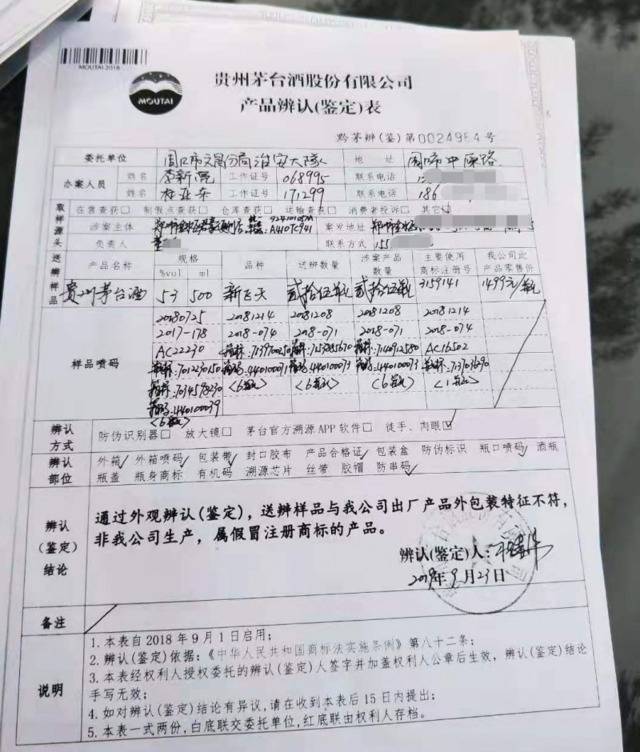 MOUTAI 2018
MOUTAI
贵州茅台酒股份有限公司
产品辨认(鉴定)表
黔茅辨(鉴)第0024984号
委托单位 周口市文昌分局治安大队 地址 周口市中原路
办案人员 姓名 工作证号 068995 联系电话
姓名 工作证号 171299 联系电话 186
取样源头 在售查获□ 制假点查获□ 仓库查获□ 运输查获□ 消费者投诉□ 其它
涉案主体 案发地址
负责人 联系方式 155
送辨样品 产品名称 规格 %vol ml 品种 送辨数量 涉案产品数量 主要使用商标注册号 我公司此产品零售价
贵州茅台酒 53 500 新飞天 贰拾伍瓶 贰拾伍瓶 3159141 1499元/瓶
样品喷码
20180725 20181214 20181208 20181208 20181214
2017-178 2018-074 2018-071 2018-071 2018-074
AC22230 AC16502
<6瓶> <6瓶> <6瓶> <1瓶>
<6瓶>
辨认方式 防伪识别器□ 放大镜□ 茅台官方溯源APP软件□ 徒手、肉眼☑
辨认部位 外箱 外箱喷码 包装带 封口胶布 产品合格证 包装盒 防伪标识 瓶口喷码 酒瓶
瓶盖 瓶身商标 有机码 溯源芯片 丝带 胶帽 防串码
辨认(鉴定)结论
通过外观辨认(鉴定),送辨样品与我公司出厂产品外包装特征不符,
非我公司生产,属假冒注册商标的产品。
辨认(鉴定)人:
2019年9月23日
备注
说明
1.本表自2018年9月1日启用;
2.辨认(鉴定)依据:《中华人民共和国商标法实施条例》第八十二条;
3.本表经权利人授权委托的辨认(鉴定)人签字并加盖权利人公章后生效,辨认(鉴定)结论
手写无效;
4.如对辨认(鉴定)结论有异议,请在收到本表后15日内提出;
5.本表一式两份,白底联交委托单位,红底联由权利人存档。